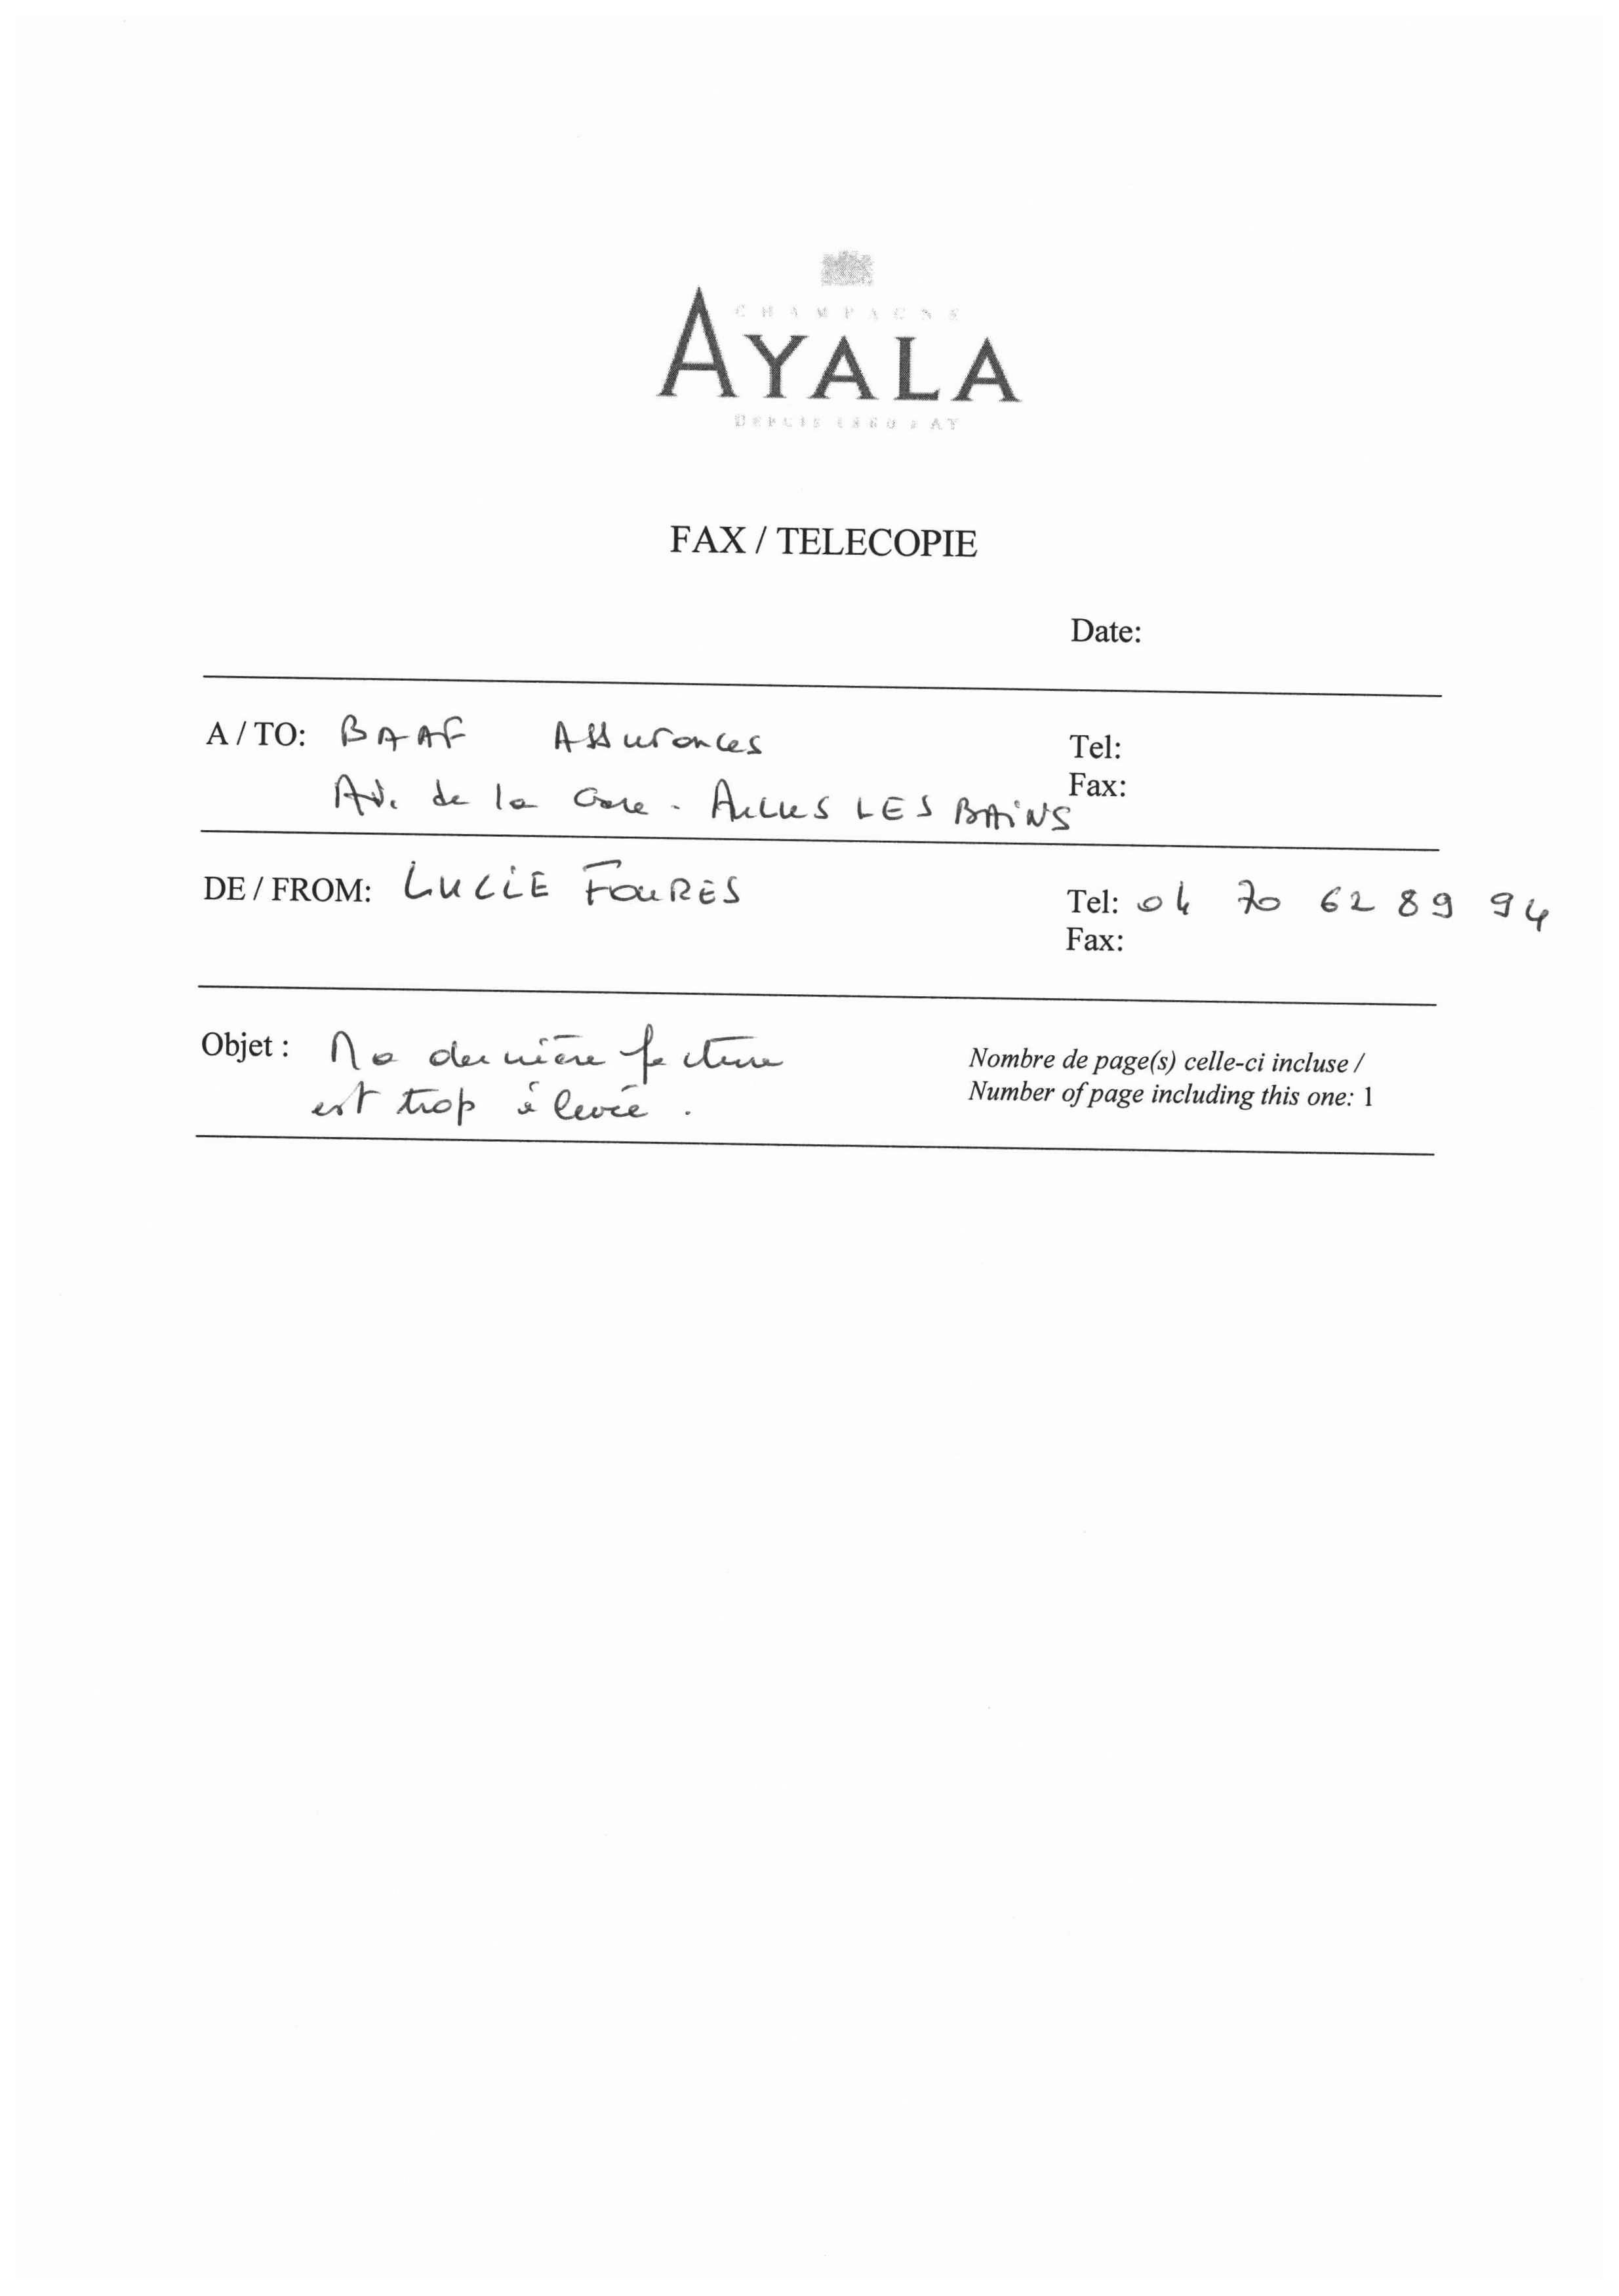 CHAMPAGNE
AYALA
DEPUIS 1860 à AY
FAX / TELECOPIE
Date:
A / TO: BAAF Assurances
Tel:
Av. de la Gare - AILLES LES BAINS
Fax:
DE / FROM: LUCIE FOURÈS
Tel: 04 70 62 89 94
Fax:
Objet : Ma dernière facture
est trop élevée.
Nombre de page(s) celle-ci incluse /
Number of page including this one: 1